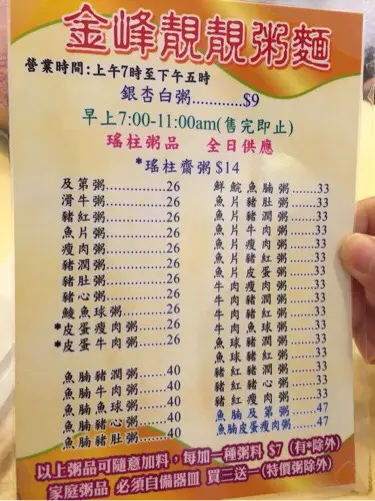 金峰靚靚粥麵
營業時間:上午7時至下午五時
銀杏白粥............$9
早上7:00-11:00am(售完即止)
瑤柱粥品 全日供應
*瑤柱齋粥 $14
及第粥............26
滑牛粥............26
豬紅粥............26
魚片粥............26
瘦肉粥............26
豬潤粥............26
豬肚粥............26
豬心粥............26
鯪魚球粥.........26
*皮蛋瘦肉粥......26
*皮蛋牛肉粥......26
魚腩豬潤粥......40
魚腩牛肉粥......40
魚腩魚球粥......40
魚腩豬心粥......40
魚腩豬肚粥......40
鮮鯇魚腩粥......33
魚片豬肚粥......33
魚片牛肉粥......33
魚片豬潤粥......33
魚片豬紅粥......33
魚片皮蛋粥......33
牛肉瘦肉粥......33
牛肉豬潤粥......33
牛肉豬紅粥......33
牛肉魚球粥......33
魚球豬紅粥......33
豬紅豬心粥......33
豬紅豬潤粥......33
魚腩及第粥......47
魚腩皮蛋瘦肉粥...47
以上粥品可隨意加料，每加一種粥料 $7 (有*除外)
家庭粥品 必須自備器皿 買三送一(特價粥除外)